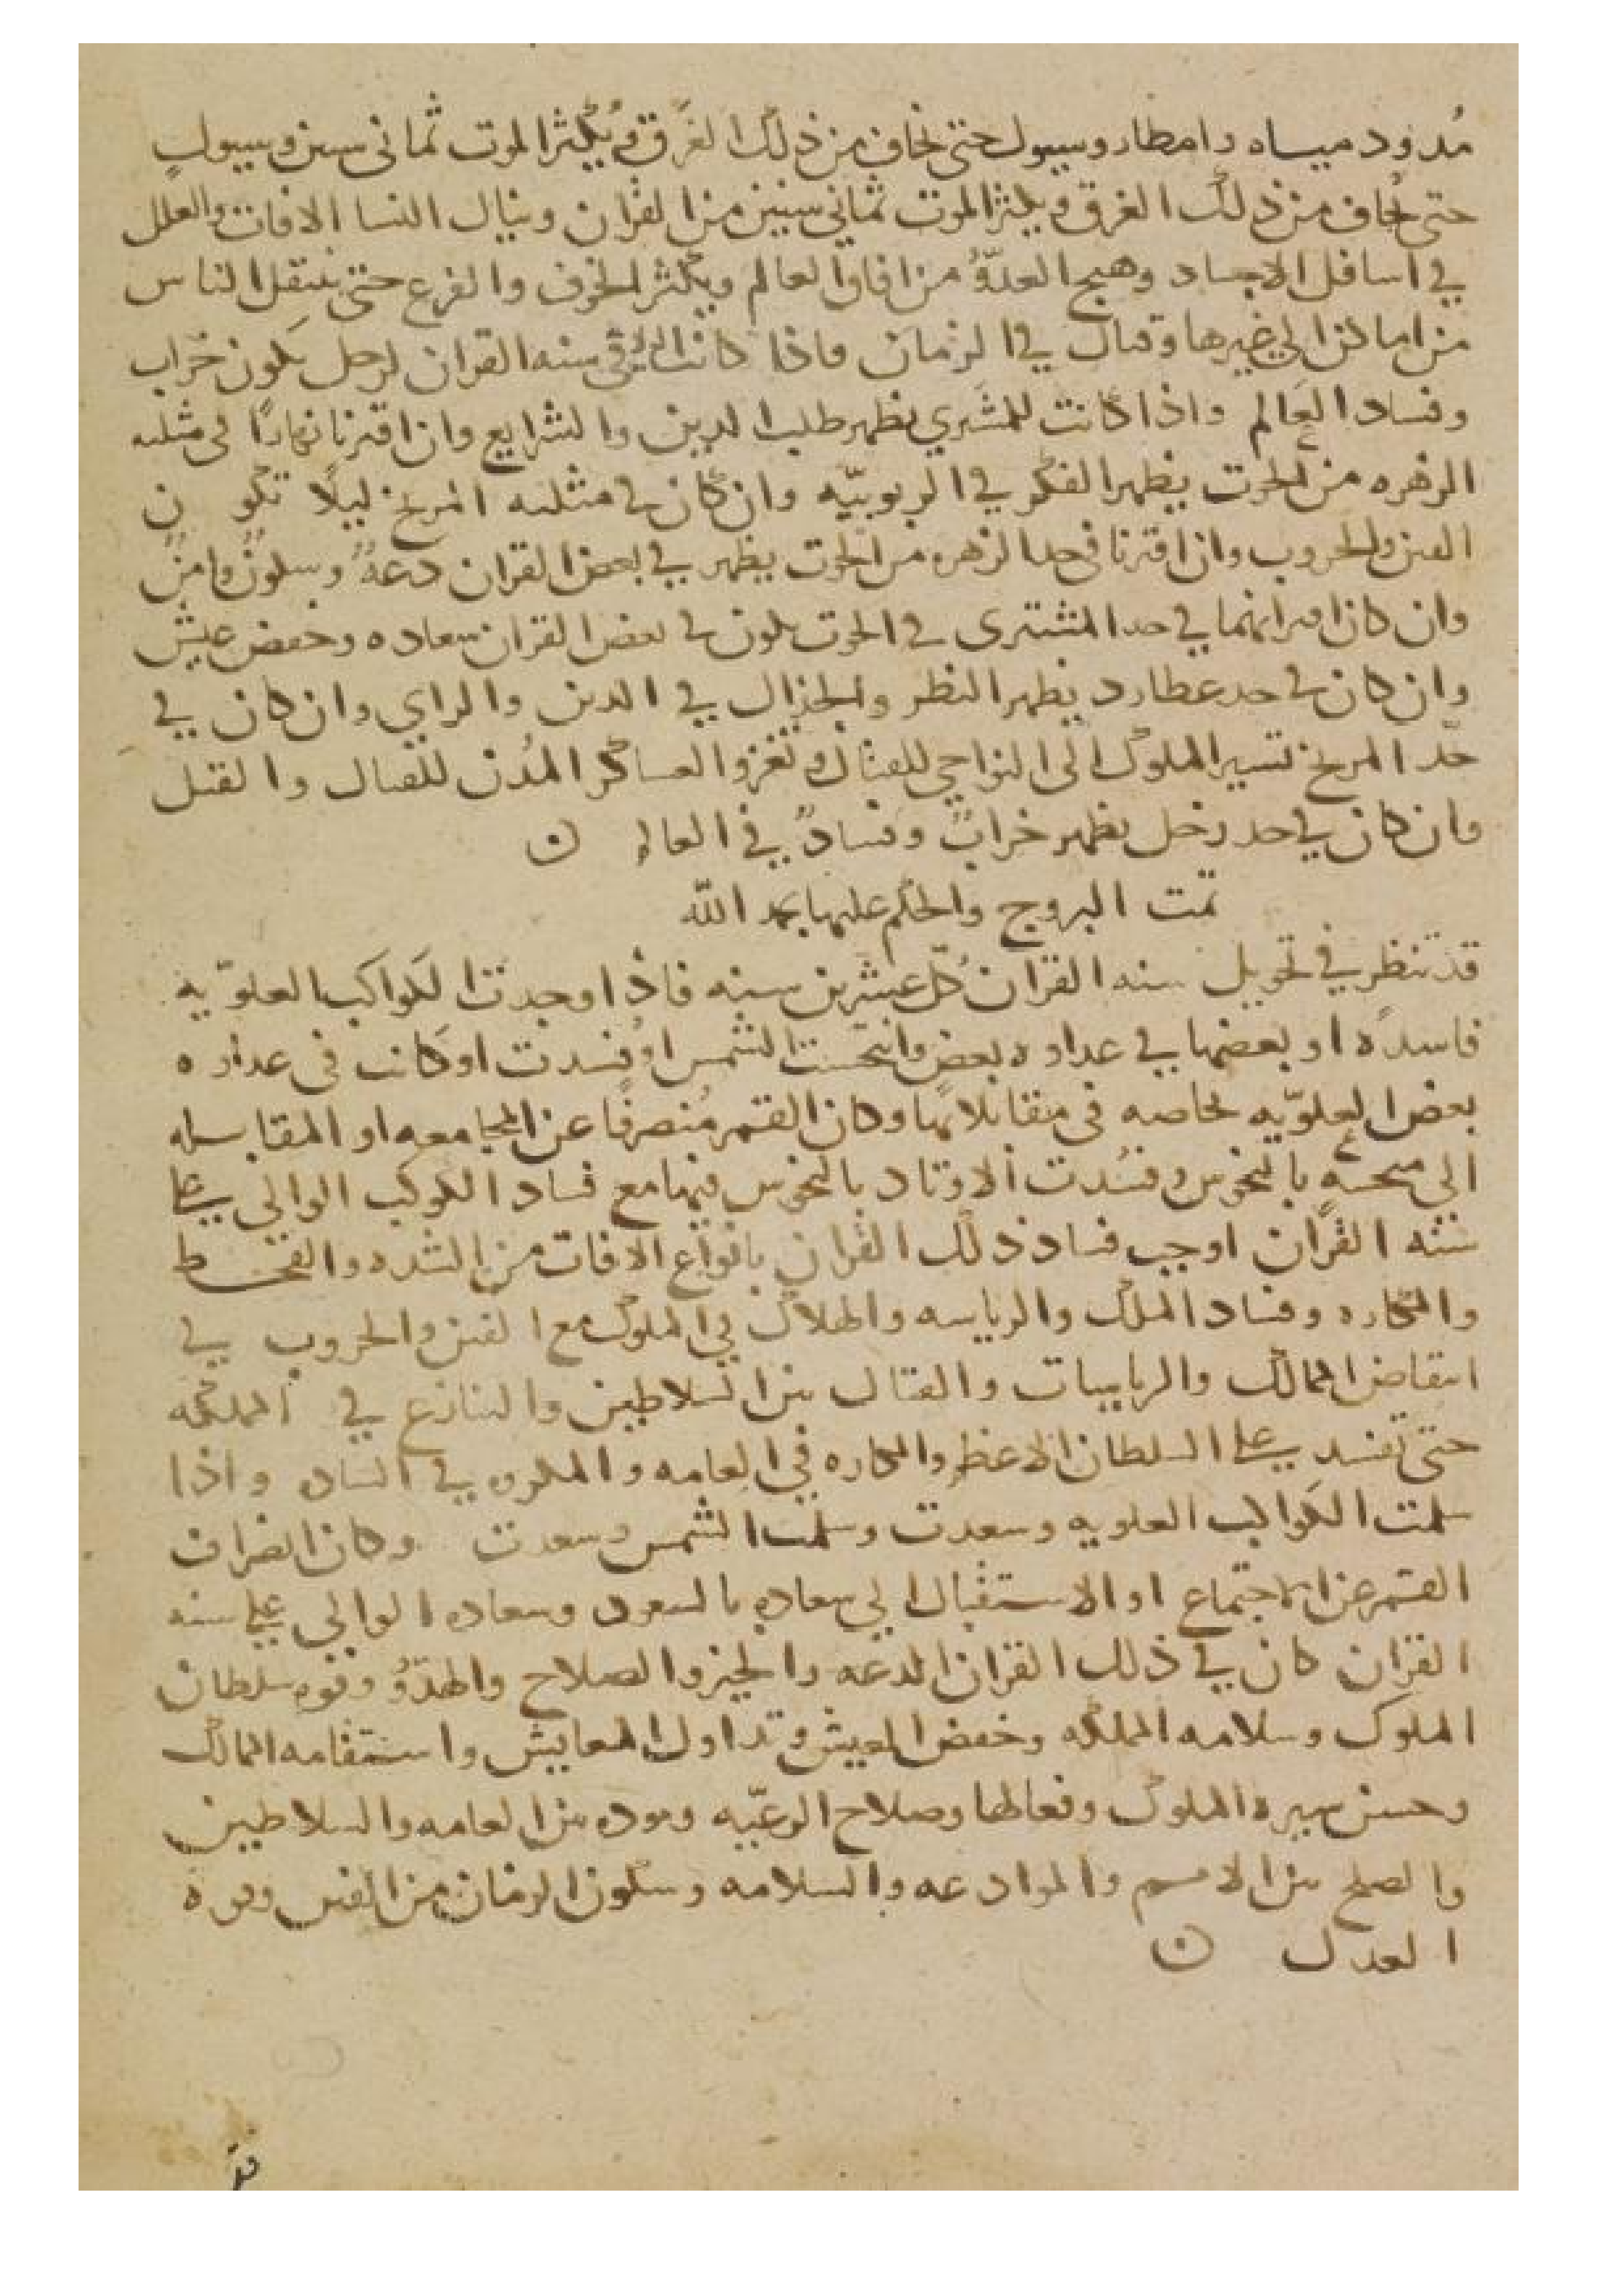 مُدود مياه وامطار وسيول حتى يخاف من ذلك الغرق ويُكثر الموت ثماني سنين وسيول
حتى يُخاف من ذلك الغرق ويكثر الموت ثماني سنين من القران وينال النسا الافات والعلل
في اسافل الاجساد وهيج العدوّ من افاق العالم ويكثر الخوف والفزع حتى ينتقل الناس
من اماكن الى غيرها وقتال في الزمان فاذا كانت في سنه القران لزحل يكون خراب
وفساد العالم واذا كانت للمشتري يظهر طلب الدين والشرايع وان اقترنا نهارًا في مثلثه
الزهره من الحوت يظهر الفكر في الربوبيّه وان كان في مثلثه المريخ ليلًا تكو ن
الفتن والحروب وان اقترنا في حد الزهره من الحوت يظهر في بعض القران دعهٌ وسكونٌ وامنٌ
وان كان اقترانهما في حد المشتري في الحوت يكون في بعض القران سعاده وخفض عيش
وان كان في حد عطارد يظهر النظر والجدال في الدين والراي وان كان في
حدّ المريخ تسير الملوك الى النواحي للقتال وتغزو العساكر المُدن للقتال والقتل
وان كان في حد زحل يظهر خرابٌ وفسادٌ في العالم ن
تمت البروج والحكم عليها بحمد الله
قد تنظر في تحويل سنه القران كلّ عشرين سنه فاذا وجدت الكواكب العلويّه
فاسدةً او بعضها في عداوه بعض وانتحست الشمس او فسدت او كانت في عداوه
بعض العلويّه بخاصه في مقابلاتها وكان القمر مُنصرفًا عن المجامعه او المقابله
الى منحسه بالنحوس وفسُدت الاوتاد بالنحوس فيها مع فساد الكوكب الوالي على
سنه القران اوجب فساد ذلك القران بانواع الافات من الشده والقحط
والمكاره وفساد الملك والرياسه والهلاك في الملوك مع الفتن والحروب في
انتقاض الممالك والرياسات والقتال بين السلاطين والتنازع في المملكه
حتى تفسد على السلطان الاعظم والمكاره في العامه والمكروه في واذا
سلمت الكواكب العلويه وسعدت وسلمت الشمس وسعدت وكان انصراف
القمر عن الاجتماع او الاستقبال الى سعاده بالسعود وسعاده الوالي على سنه
القران كان في ذلك القران الدعه والخير والصلاح والهدوُّ وقوه سلطان
الملوك وسلامه المملكه وخفض المعيش وتداول المعايش واستقامه الممالك
وحسن سيرة الملوك وفعالها وصلاح الرعيّه وموده بين العامه والسلاطين
والصلح بين الامم والموادعه والسلامه وسكون الزمان من الفتن وقوة
العدل ن